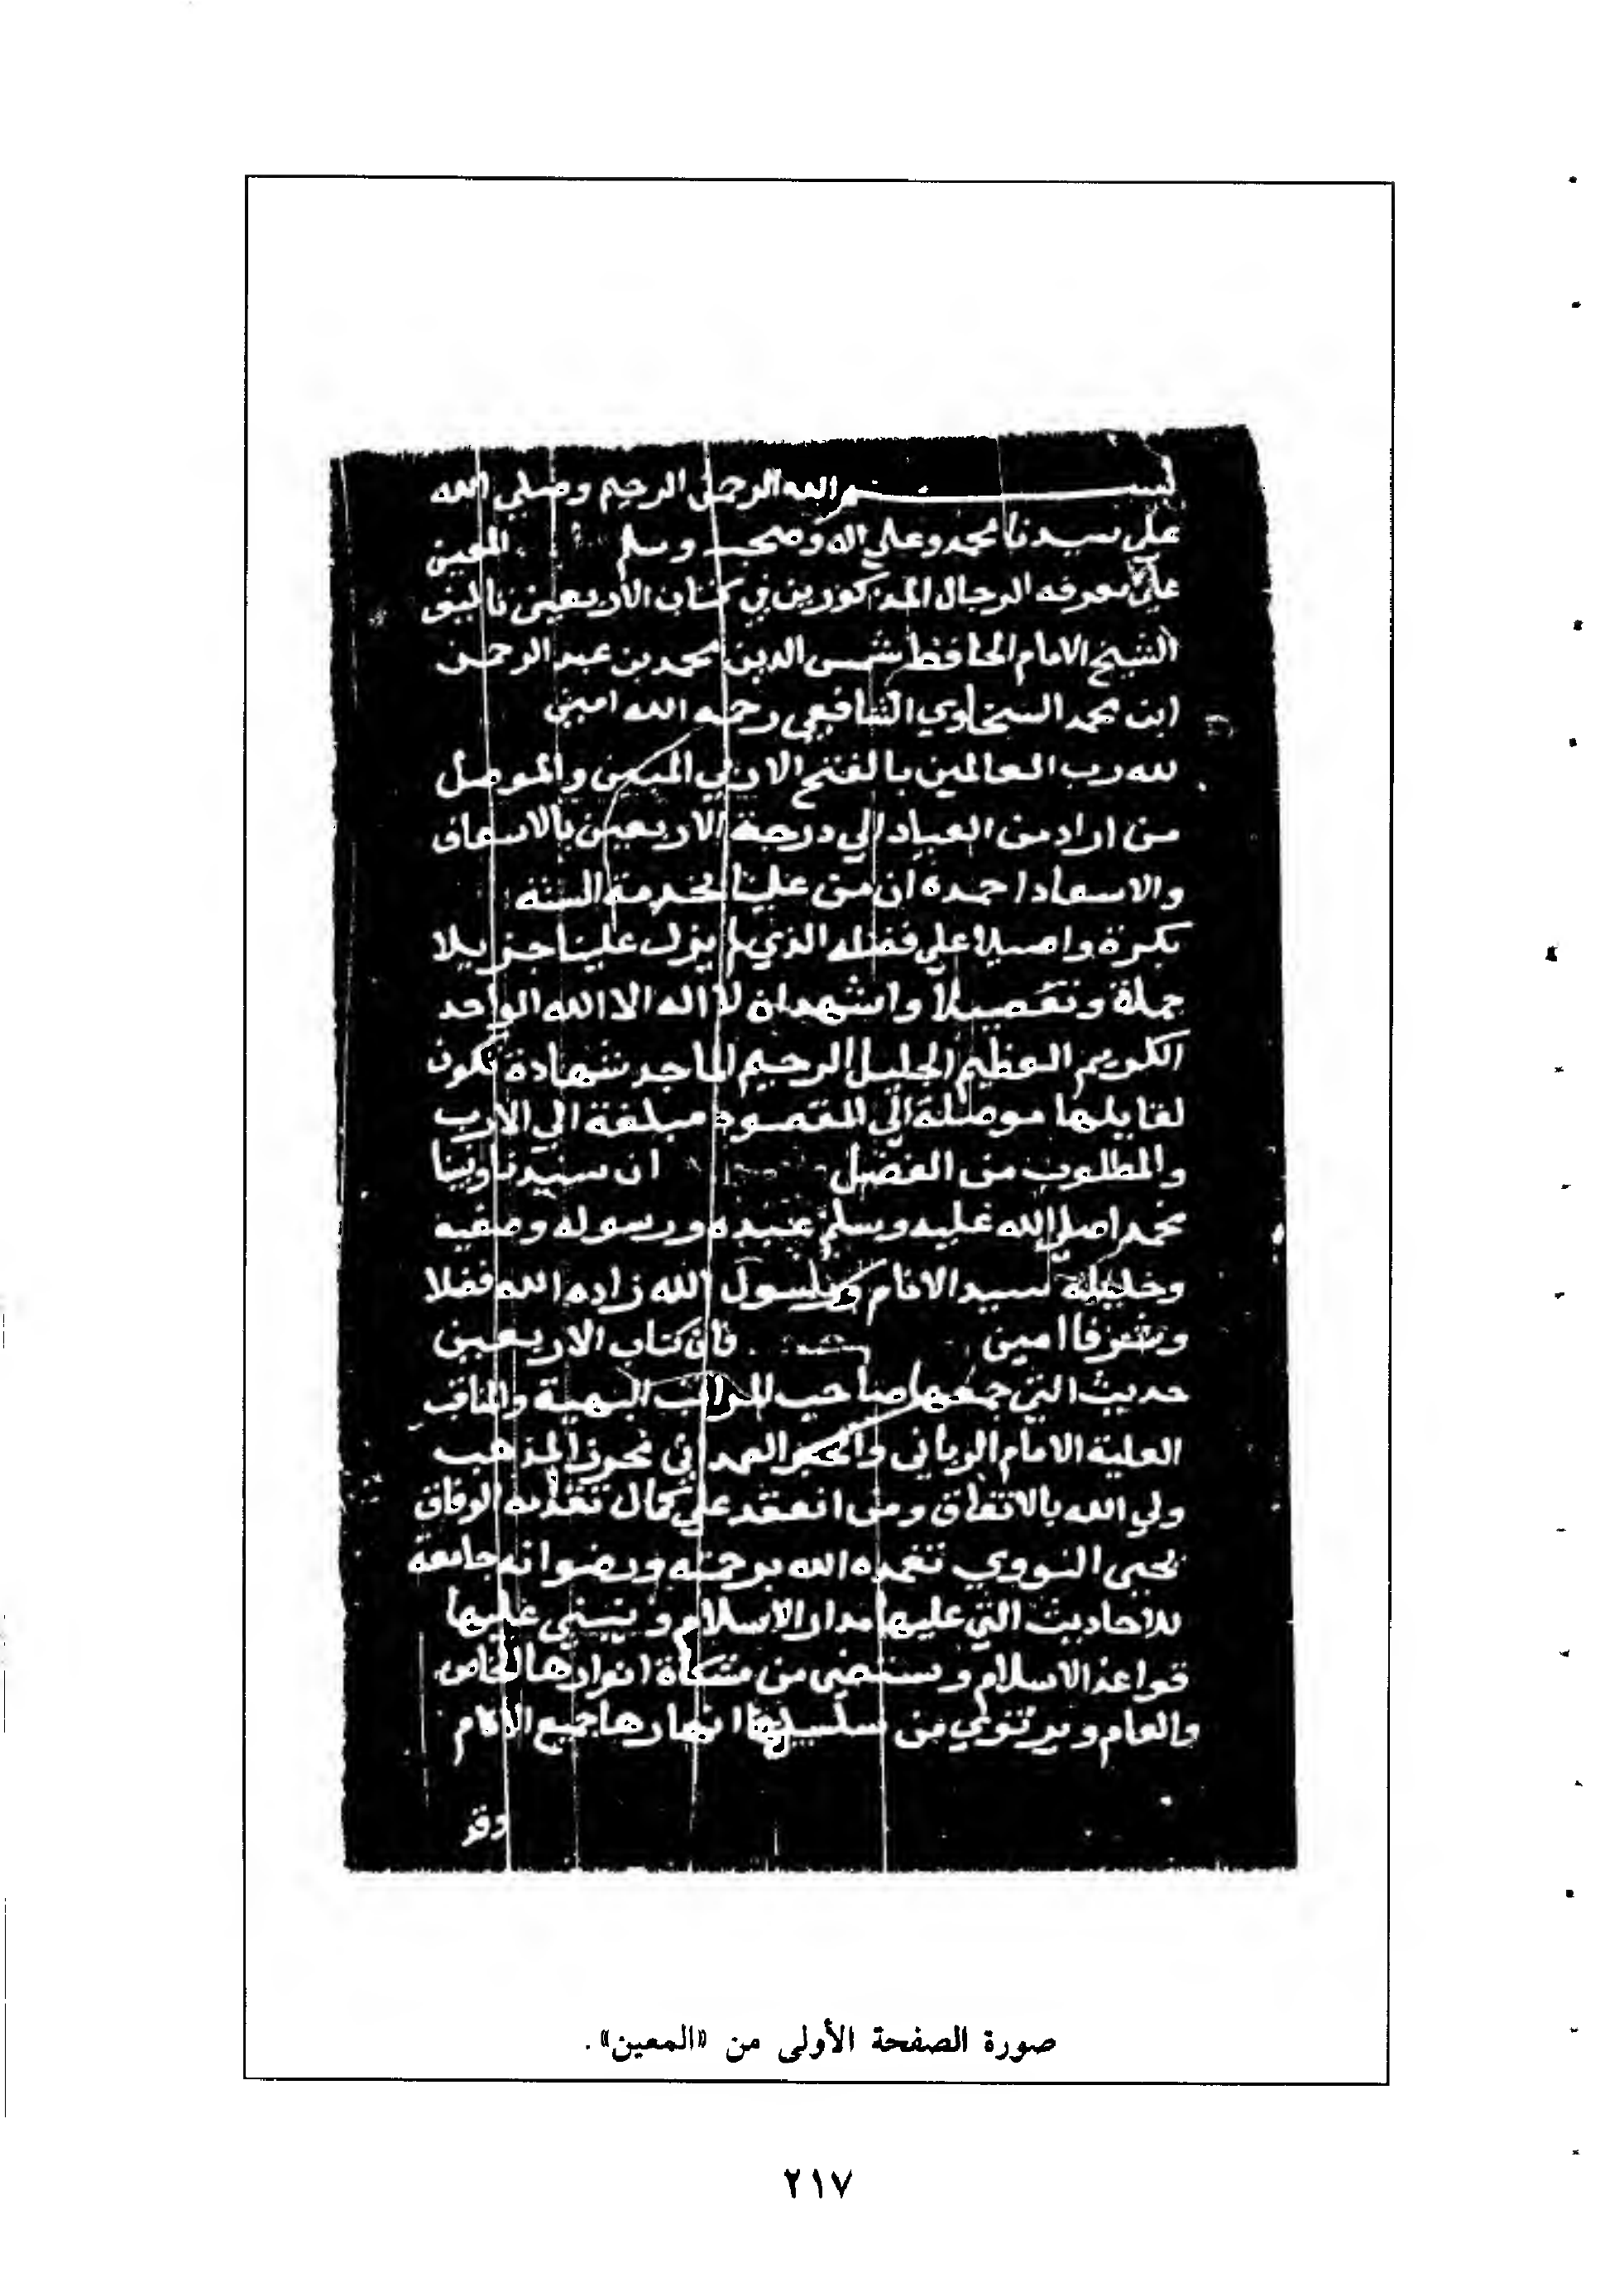 بسم الله الرحمن الرحيم وصلي الله
علي سيدنا محمد وعلي اله وصحبه وسلم المعين
علي معرفه الرجال المذكورين في كتاب الأربعين تاليف
الشيخ الامام الحافظ شمس الدين محمد بن عبد الرحمن
ابن محمد السخاوي الشافعي رحمه الله امين
لله رب العالمين بالفتح المبين والموصل
من اراد من العباد الي درجة الاربعين بالاسعاف
والاسعاد احمده ان من علينا بخدمة السنة
بكرة واصيلا علي فضله الذي لم يزل علينا جزيلا
جملة وتفصيلا واشهد ان لا اله الا الله الواحد
الكريم العظيم الجليل الرحيم الماجد شهادة تكون
لقايلها موصلة الي المقصود مبلغة الي الارب
والمطلوب من الفضل ان سيدنا ونبينا
محمدا صلي الله عليه وسلم عبده ورسوله وصفيه
وخليله سيد الانام ورسول الله زاده الله فضلا
وشرفا امين فان كتاب الاربعين
حديث التي جمعها صاحب المراتب البهية والمناقب
العلية الامام الرباني والحبر الصمداني محرر المذهب
ولي الله بالاتفاق ومن انعقد علي كمال الوفاق
يحيى النووي تغمده الله برحمته ورضوانه جامعة
للاحاديث التي عليها مدار الاسلام وينبني عليها
قواعد الاسلام ويستضي من مشكاة انوارها الخاص
والعام ويرتوي من سلسبيل انهارها جميع الانام
وقد
صورة الصفحة الأولى من «المعين».
٢١٧